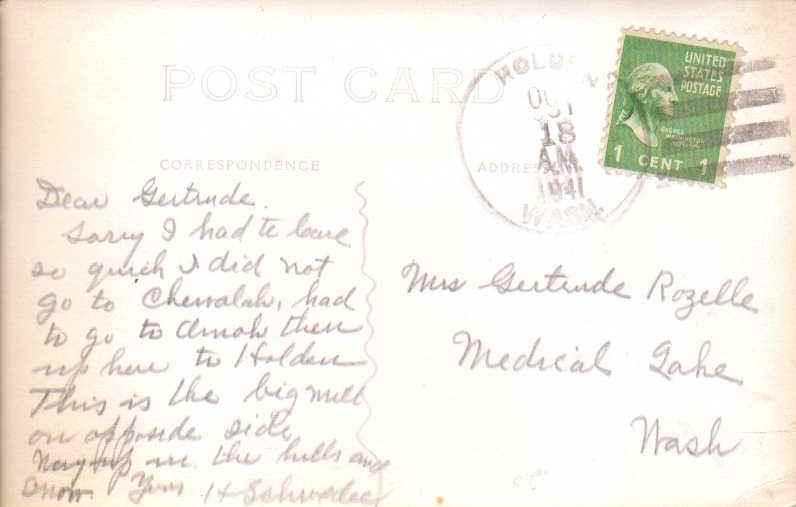 POST CARD
CORRESPONDENCE
ADDRESS
HOLDEN
OCT
18
AM
1941
WASH.
UNITED
STATES
POSTAGE
GEORGE
WASHINGTON
1 CENT 1
Dear Gertrude.
Sorry I had to leave
so quick I did not
go to Chewalah, had
to go to Omak then
up here to Holden
This is the big mill
on opposide side
Way up in the hills and
Snow. Yours H Schroeder
Mrs Gertrude Rozelle
Medical Lake
Wash